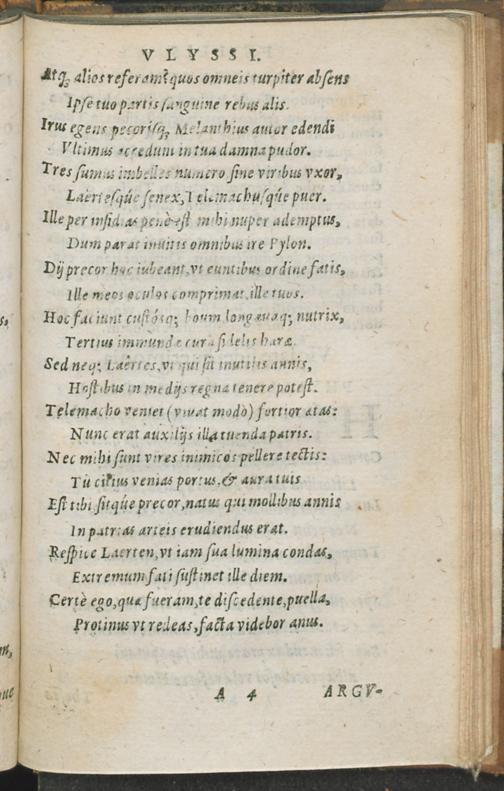 VLYSSI.
Atq; alios referam? quos omneis turpiter absens
Ipse tuo partis sanguine rebus alis.
Irus egens pecorisq; Melanthius autor edendi
Vltimus accedunt in tua damna pudor.
Tres sumus imbelles numero sine viribus vxor,
Laërtesq́ue senex, Telemachusq́ue puer.
Ille per insidias penè est mihi nuper ademptus,
Dum parat inuitis omnibus ire Pylon.
Dij precor hoc iubeant, vt euntibus ordine fatis,
Ille meos oculos comprimat, ille tuos.
Hoc faciunt custósq; boum longæuaq; nutrix,
Tertius immundæ cura fidelis haræ.
Sed neq; Laërtes, vt qui sit inutilis annis,
Hostibus in medijs regna tenere potest.
Telemacho veniet (viuat modò) fortior ætas:
Nunc erat auxilijs illa tuenda patris.
Nec mihi sunt vires inimicos pellere tectis:
Tù citius venias portus, & aura tuis
Est tibi sitq́ue precor, natus qui mollibus annis
In patrias arteis erudiendus erat.
Respice Laërten, vt iam sua lumina condas,
Extremum fati sustinet ille diem.
Certè ego, quæ fueram, te discedente, puella,
Protinus vt redeas, facta videbor anus.
A 4 ARGV-